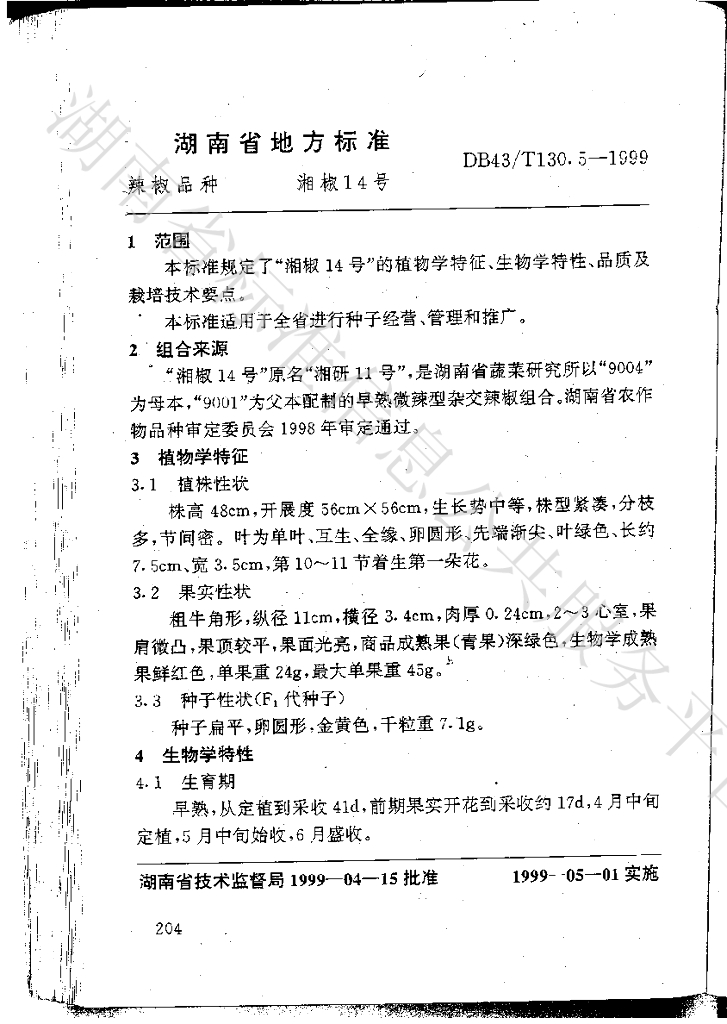 湖南省地方标准
DB43/T130.5—1999
辣椒品种 湘椒14号
1 范围
本标准规定了“湘椒 14 号”的植物学特征、生物学特性、品质及
栽培技术要点。
本标准适用于全省进行种子经营、管理和推广。
2 组合来源
“湘椒 14 号”原名“湘研 11 号”,是湖南省蔬菜研究所以“9004”
为母本,“9001”为父本配制的早熟微辣型杂交辣椒组合。湖南省农作
物品种审定委员会 1998 年审定通过。
3 植物学特征
3.1 植株性状
株高 48cm,开展度 56cm×56cm,生长势中等,株型紧凑,分枝
多,节间密。叶为单叶、互生、全缘、卵圆形、先端渐尖、叶绿色、长约
7.5cm、宽 3.5cm,第 10～11 节着生第一朵花。
3.2 果实性状
粗牛角形,纵径 11cm,横径 3.4cm,肉厚 0.24cm,2～3 心室,果
肩微凸,果顶较平,果面光亮,商品成熟果(青果)深绿色,生物学成熟
果鲜红色,单果重 24g,最大单果重 45g。
3.3 种子性状(F₁ 代种子)
种子扁平,卵圆形,金黄色,千粒重 7.1g。
4 生物学特性
4.1 生育期
早熟,从定植到采收 41d,前期果实开花到采收约 17d,4 月中旬
定植,5 月中旬始收,6 月盛收。
湖南省技术监督局 1999—04—15 批准 1999--05—01 实施
204
湖南省标准信息公共服务平